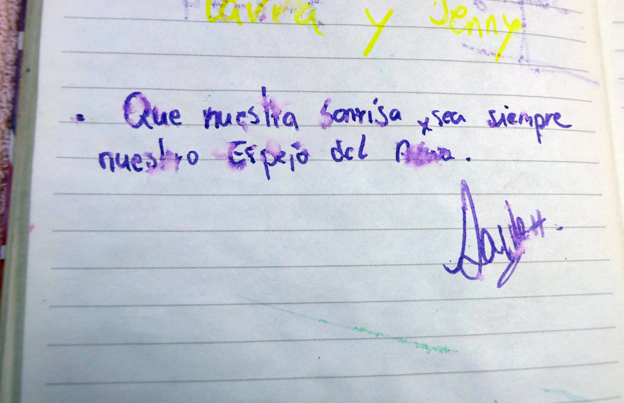 Laura y Jenny
• Que nuestra sonrisa y sea siempre
nuestro Espejo del Alma.